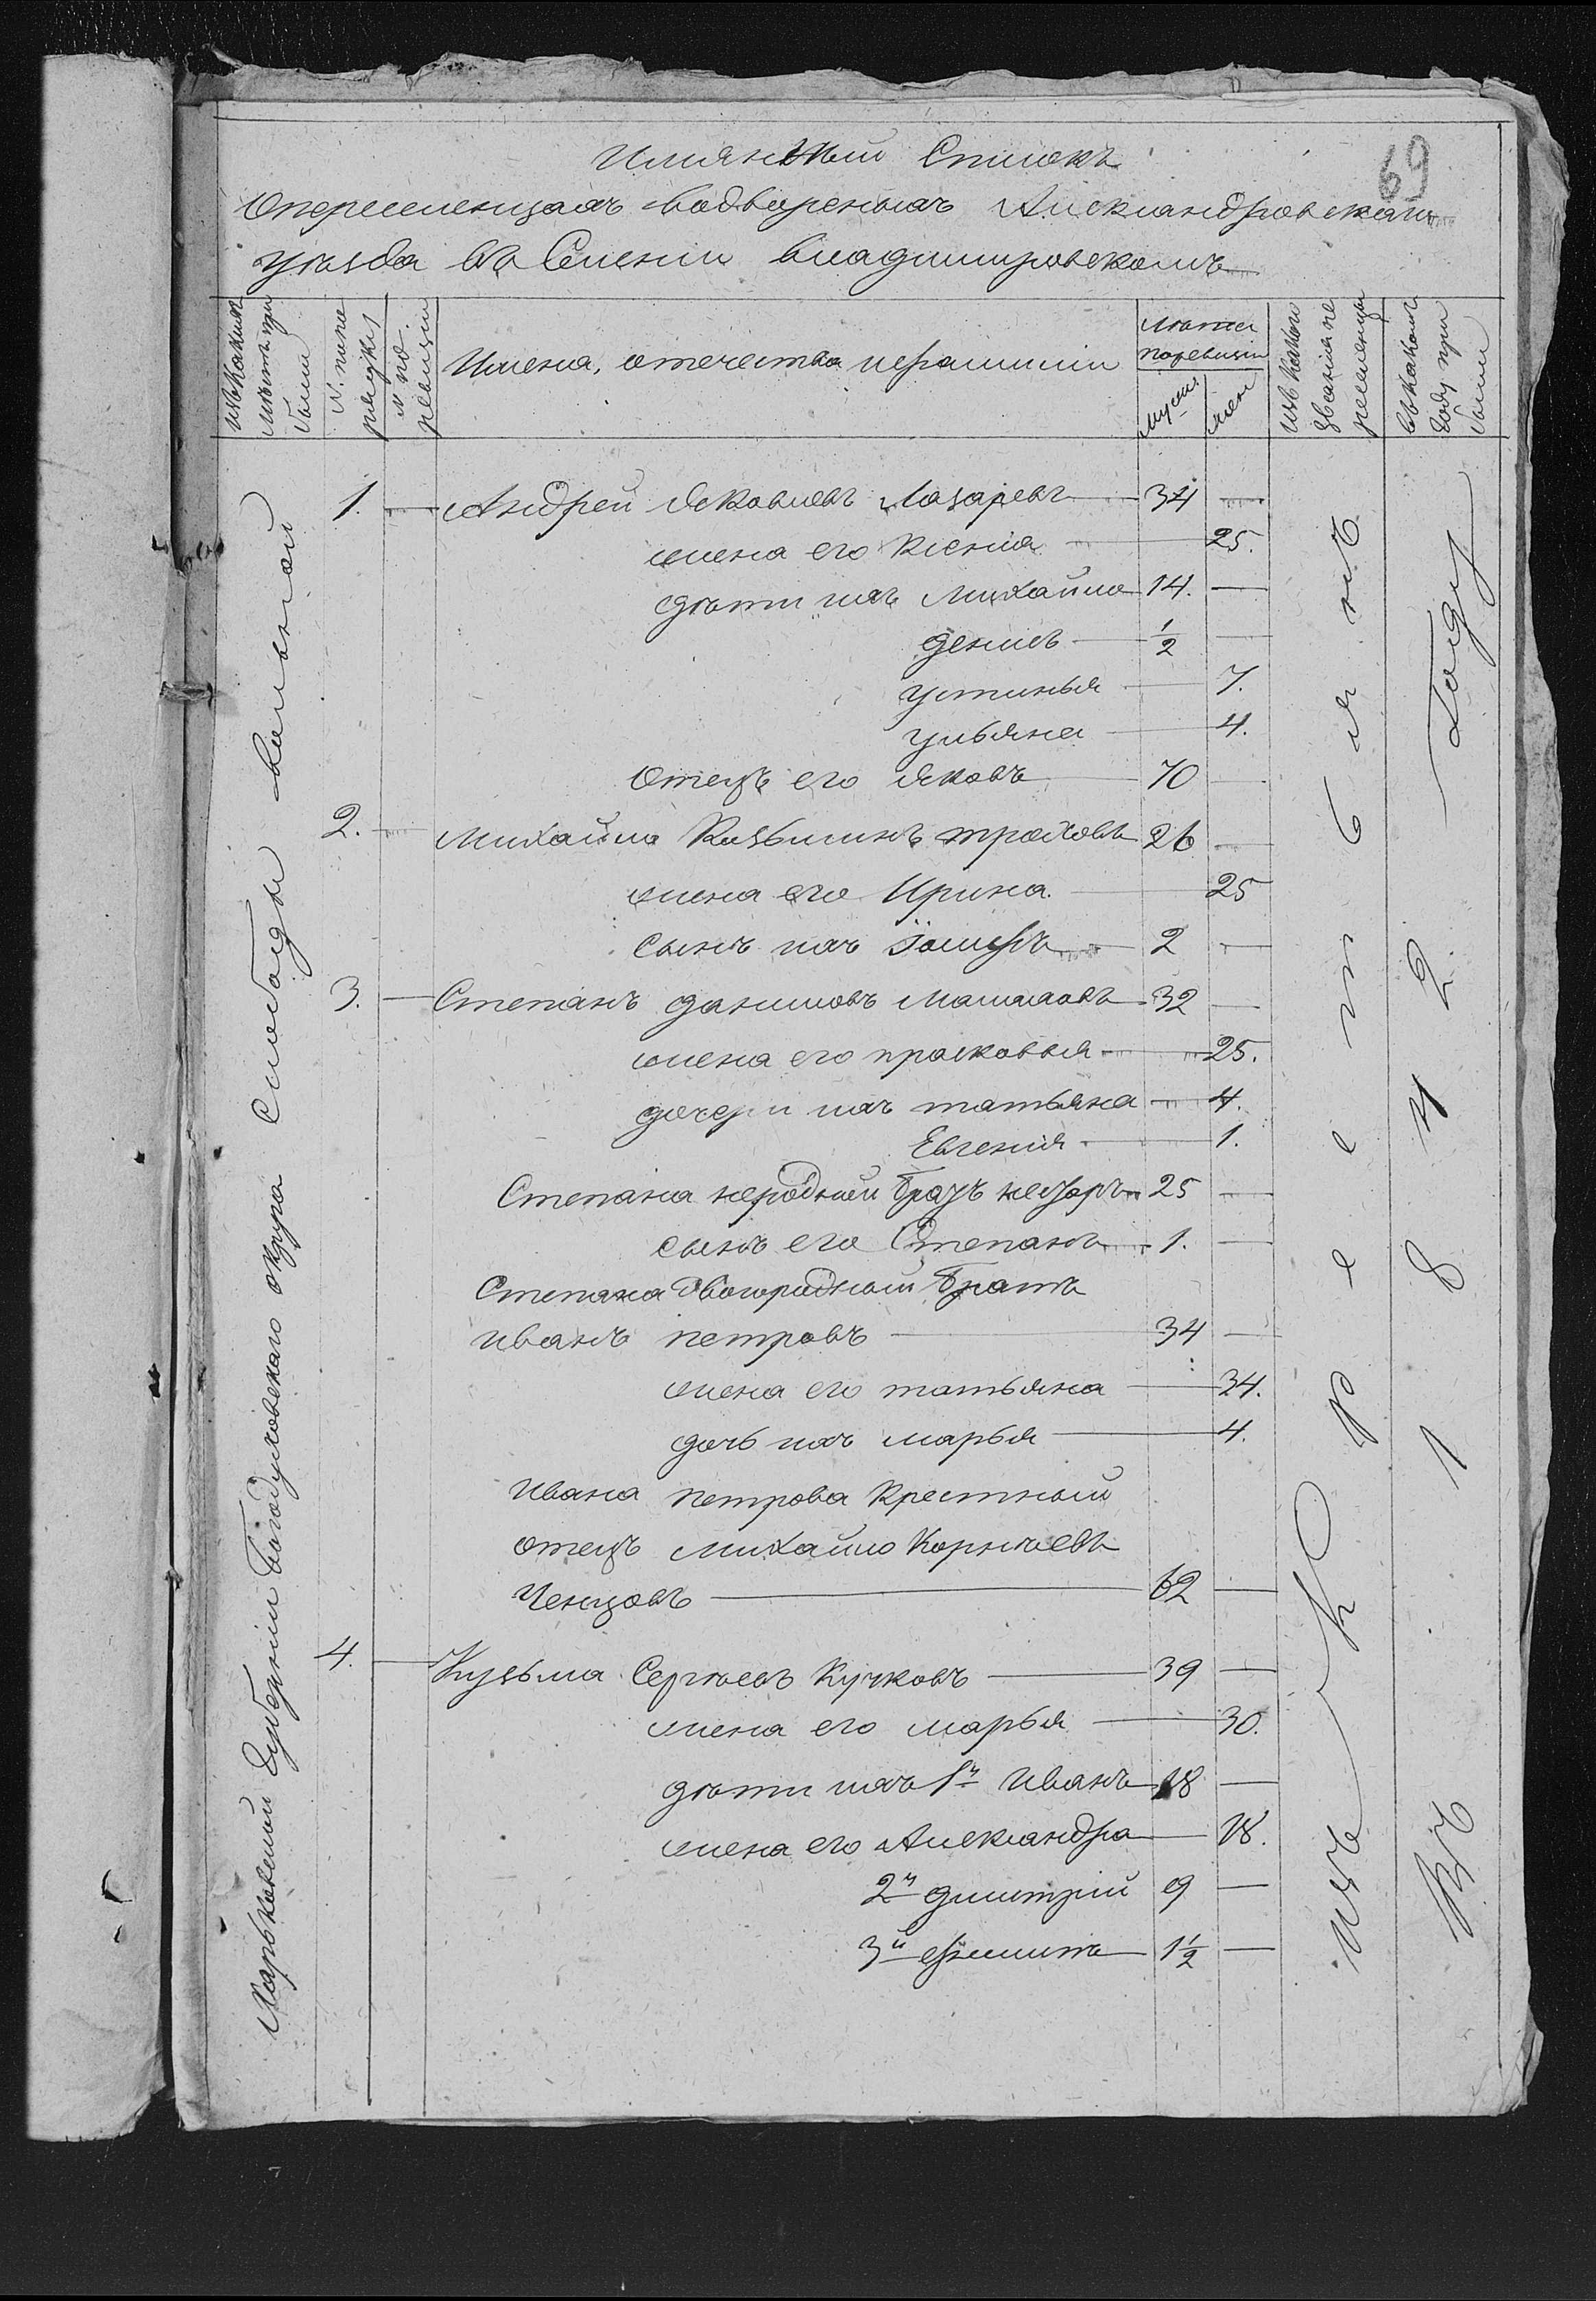 69
Имянный Списокъ
О переселенцахъ водвореныхъ Александровскаго
уѣзда въ Селении Владимировскомъ
изъ какихъ мѣстъ прибыли
№. по порядку
№ по ревизіи
Имена, отечества и фамиліи
лѣта по ревизіи
муж.
жен
изъ какого званія переселенцы
въ какомъ году прибыли
Харьковской Губерніи Богодуховскаго округа Слободы Вольнной
изъ Крестьянъ
въ 1842 Году
1. Андрей Яковлевъ Лазаревъ 34
жена его Ксения 25.
дѣти ихъ Михайло 14.
денисъ 1/2
устинья 7.
ульяна 4.
Отецъ его Яковъ 70
2. Михайло Козьминъ троховъ 26
жена его Ирина. 25
Сынъ ихъ Іосифъ 2
3. Степанъ даниловъ 32
жена его прасковья 25.
дочери ихъ татьяна 4.
Евгения 1.
Степана неродный Братъ 25
сынъ его Степанъ 1.
Степана Двоюродный Братъ
иванъ петровъ 34
жена его татьяна 34.
дочь ихъ марья 4.
Ивана петрова Крестный
отецъ михайло Корнѣевъ
Ченцовъ 62
4. Кузьма Сергѣевъ Кучковъ 39
жена его марья 30.
дѣти ихъ 1й Иванъ 18
жена его Александра 18.
2й дмитрий 9
3й 1 1/2